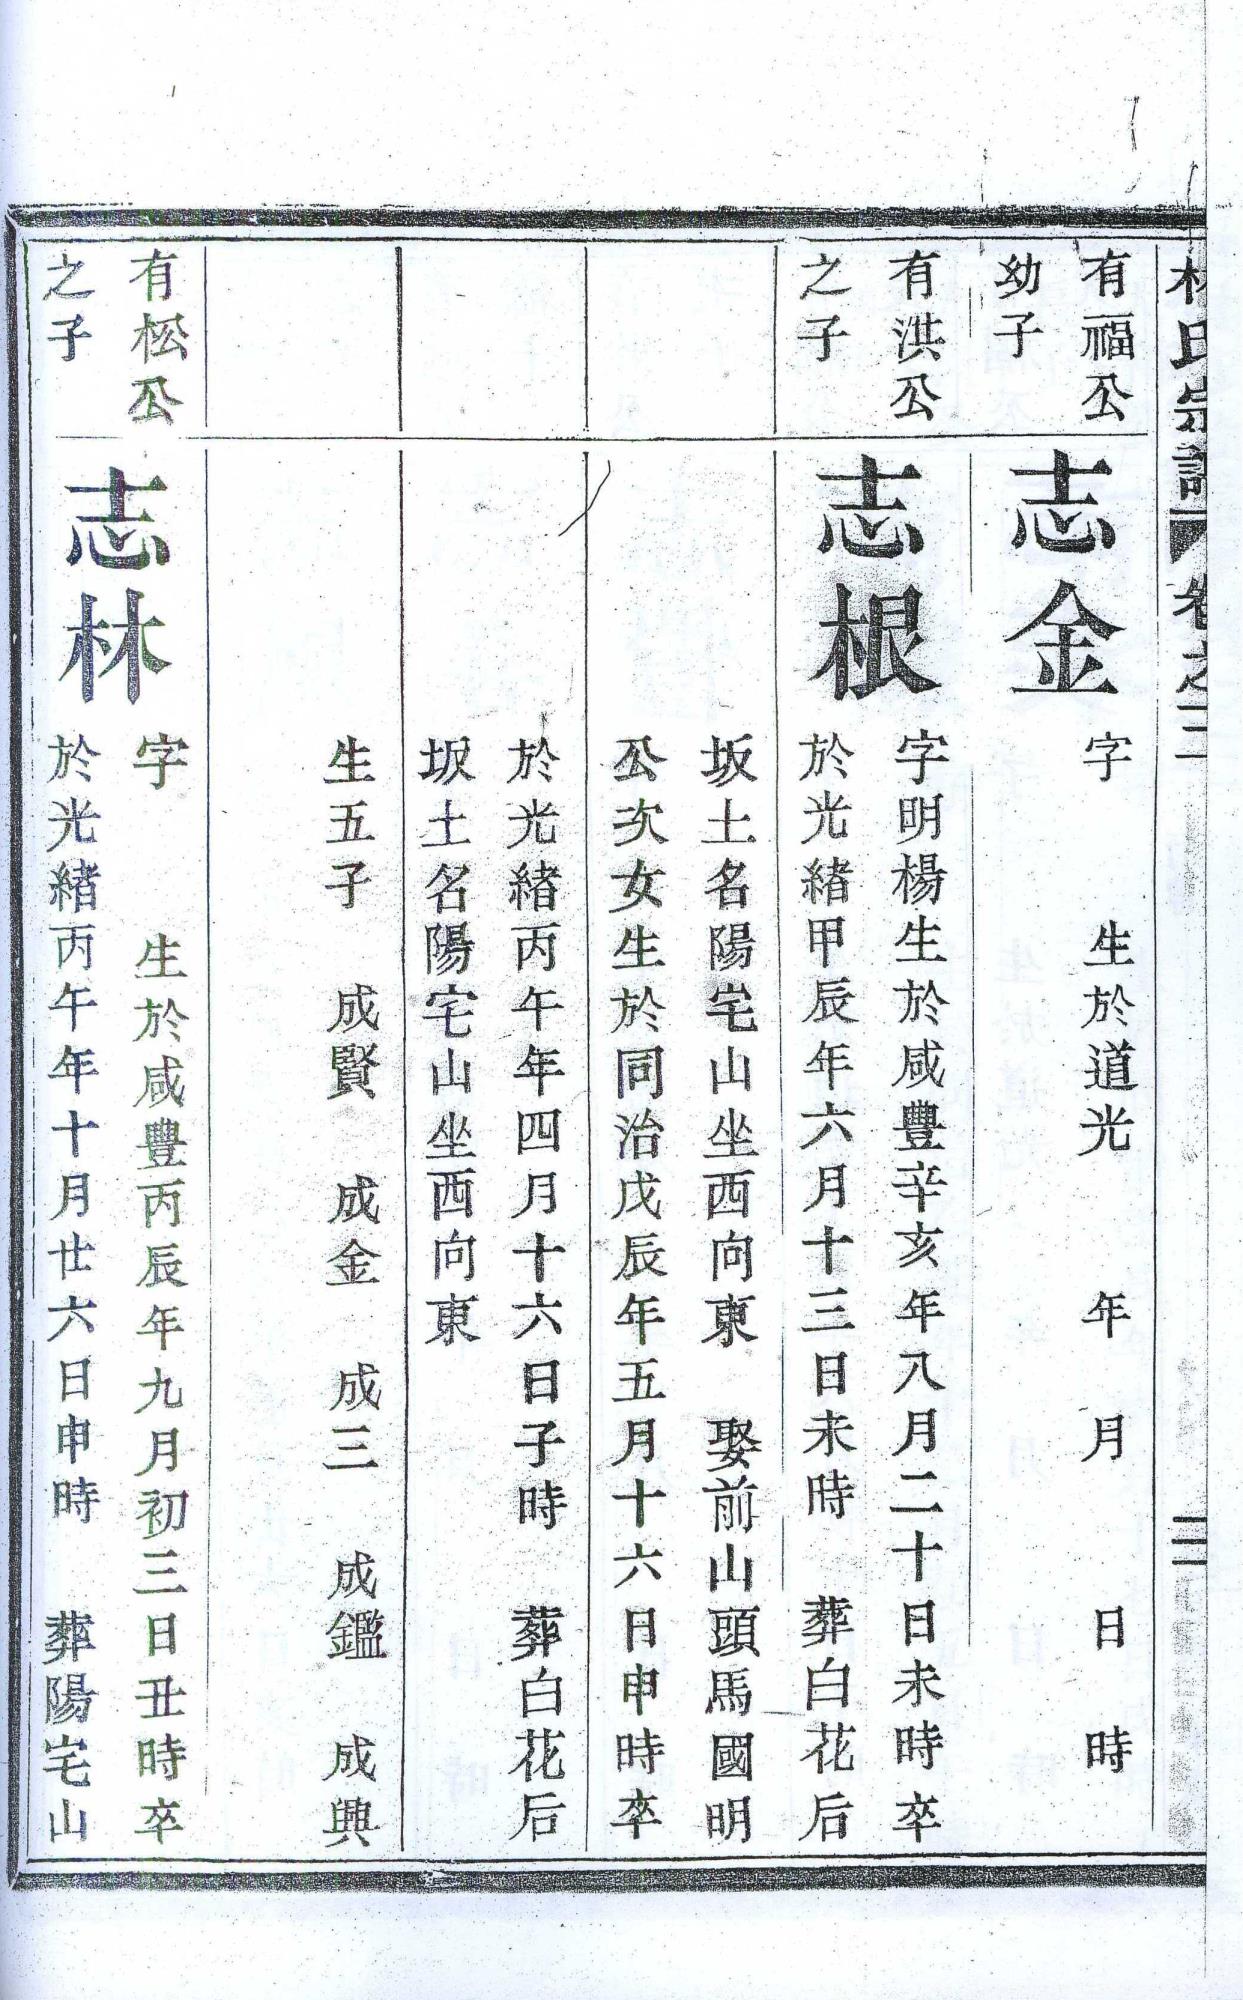 林氏宗譜 卷之二 三
有福公
幼子
志金
字 生於道光 年 月 日 時
有洪公
之子
志根
字明楊生於咸豐辛亥年八月二十日未時卒
於光緒甲辰年六月十三日未時 葬白花后
坂土名陽宅山坐西向東 娶前山頭馬國明
公次女生於同治戊辰年五月十六日申時卒
於光緒丙午年四月十六日子時 葬白花后
坂土名陽宅山坐西向東
生五子 成賢 成金 成三 成鑑 成興
有松公
之子
志林
字 生於咸豐丙辰年九月初三日丑時卒
於光緒丙午年十月廿六日申時 葬陽宅山